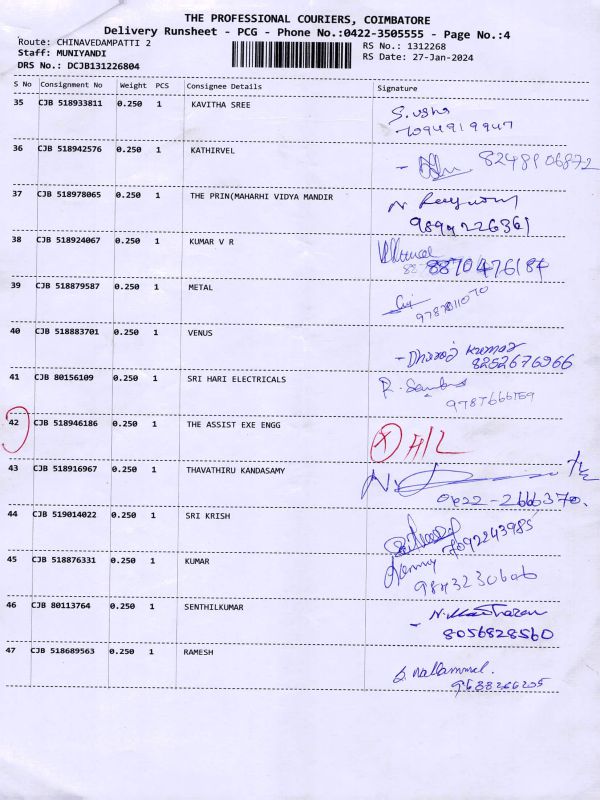 THE PROFESSIONAL COURIERS, COIMBATORE
Delivery Runsheet - PCG - Phone No.:0422-3505555 - Page No.:4
Route: CHINAVEDAMPATTI 2
RS No.: 1312268
Staff: MUNIYANDI
RS Date: 27-Jan-2024
DRS No.: DCJB131226804
S No Consignment No Weight PCS Consignee Details Signature
35 CJB 518933811 0.250 1 KAVITHA SREE S. usha
7094919947
36 CJB 518942576 0.250 1 KATHIRVEL 8248906872
37 CJB 518978065 0.250 1 THE PRIN(MAHARHI VIDYA MANDIR
38 CJB 518924067 0.250 1 KUMAR V R
8870476184
39 CJB 518879587 0.250 1 METAL
40 CJB 518883701 0.250 1 VENUS - Dharaj Kumar
8252676966
41 CJB 80156109 0.250 1 SRI HARI ELECTRICALS
42 CJB 518946186 0.250 1 THE ASSIST EXE ENGG X H/L
43 CJB 518916967 0.250 1 THAVATHIRU KANDASAMY
0422-2666370.
44 CJB 519014022 0.250 1 SRI KRISH
7092243985
45 CJB 518876331 0.250 1 KUMAR
46 CJB 80113764 0.250 1 SENTHILKUMAR
8056828560
47 CJB 518689563 0.250 1 RAMESH